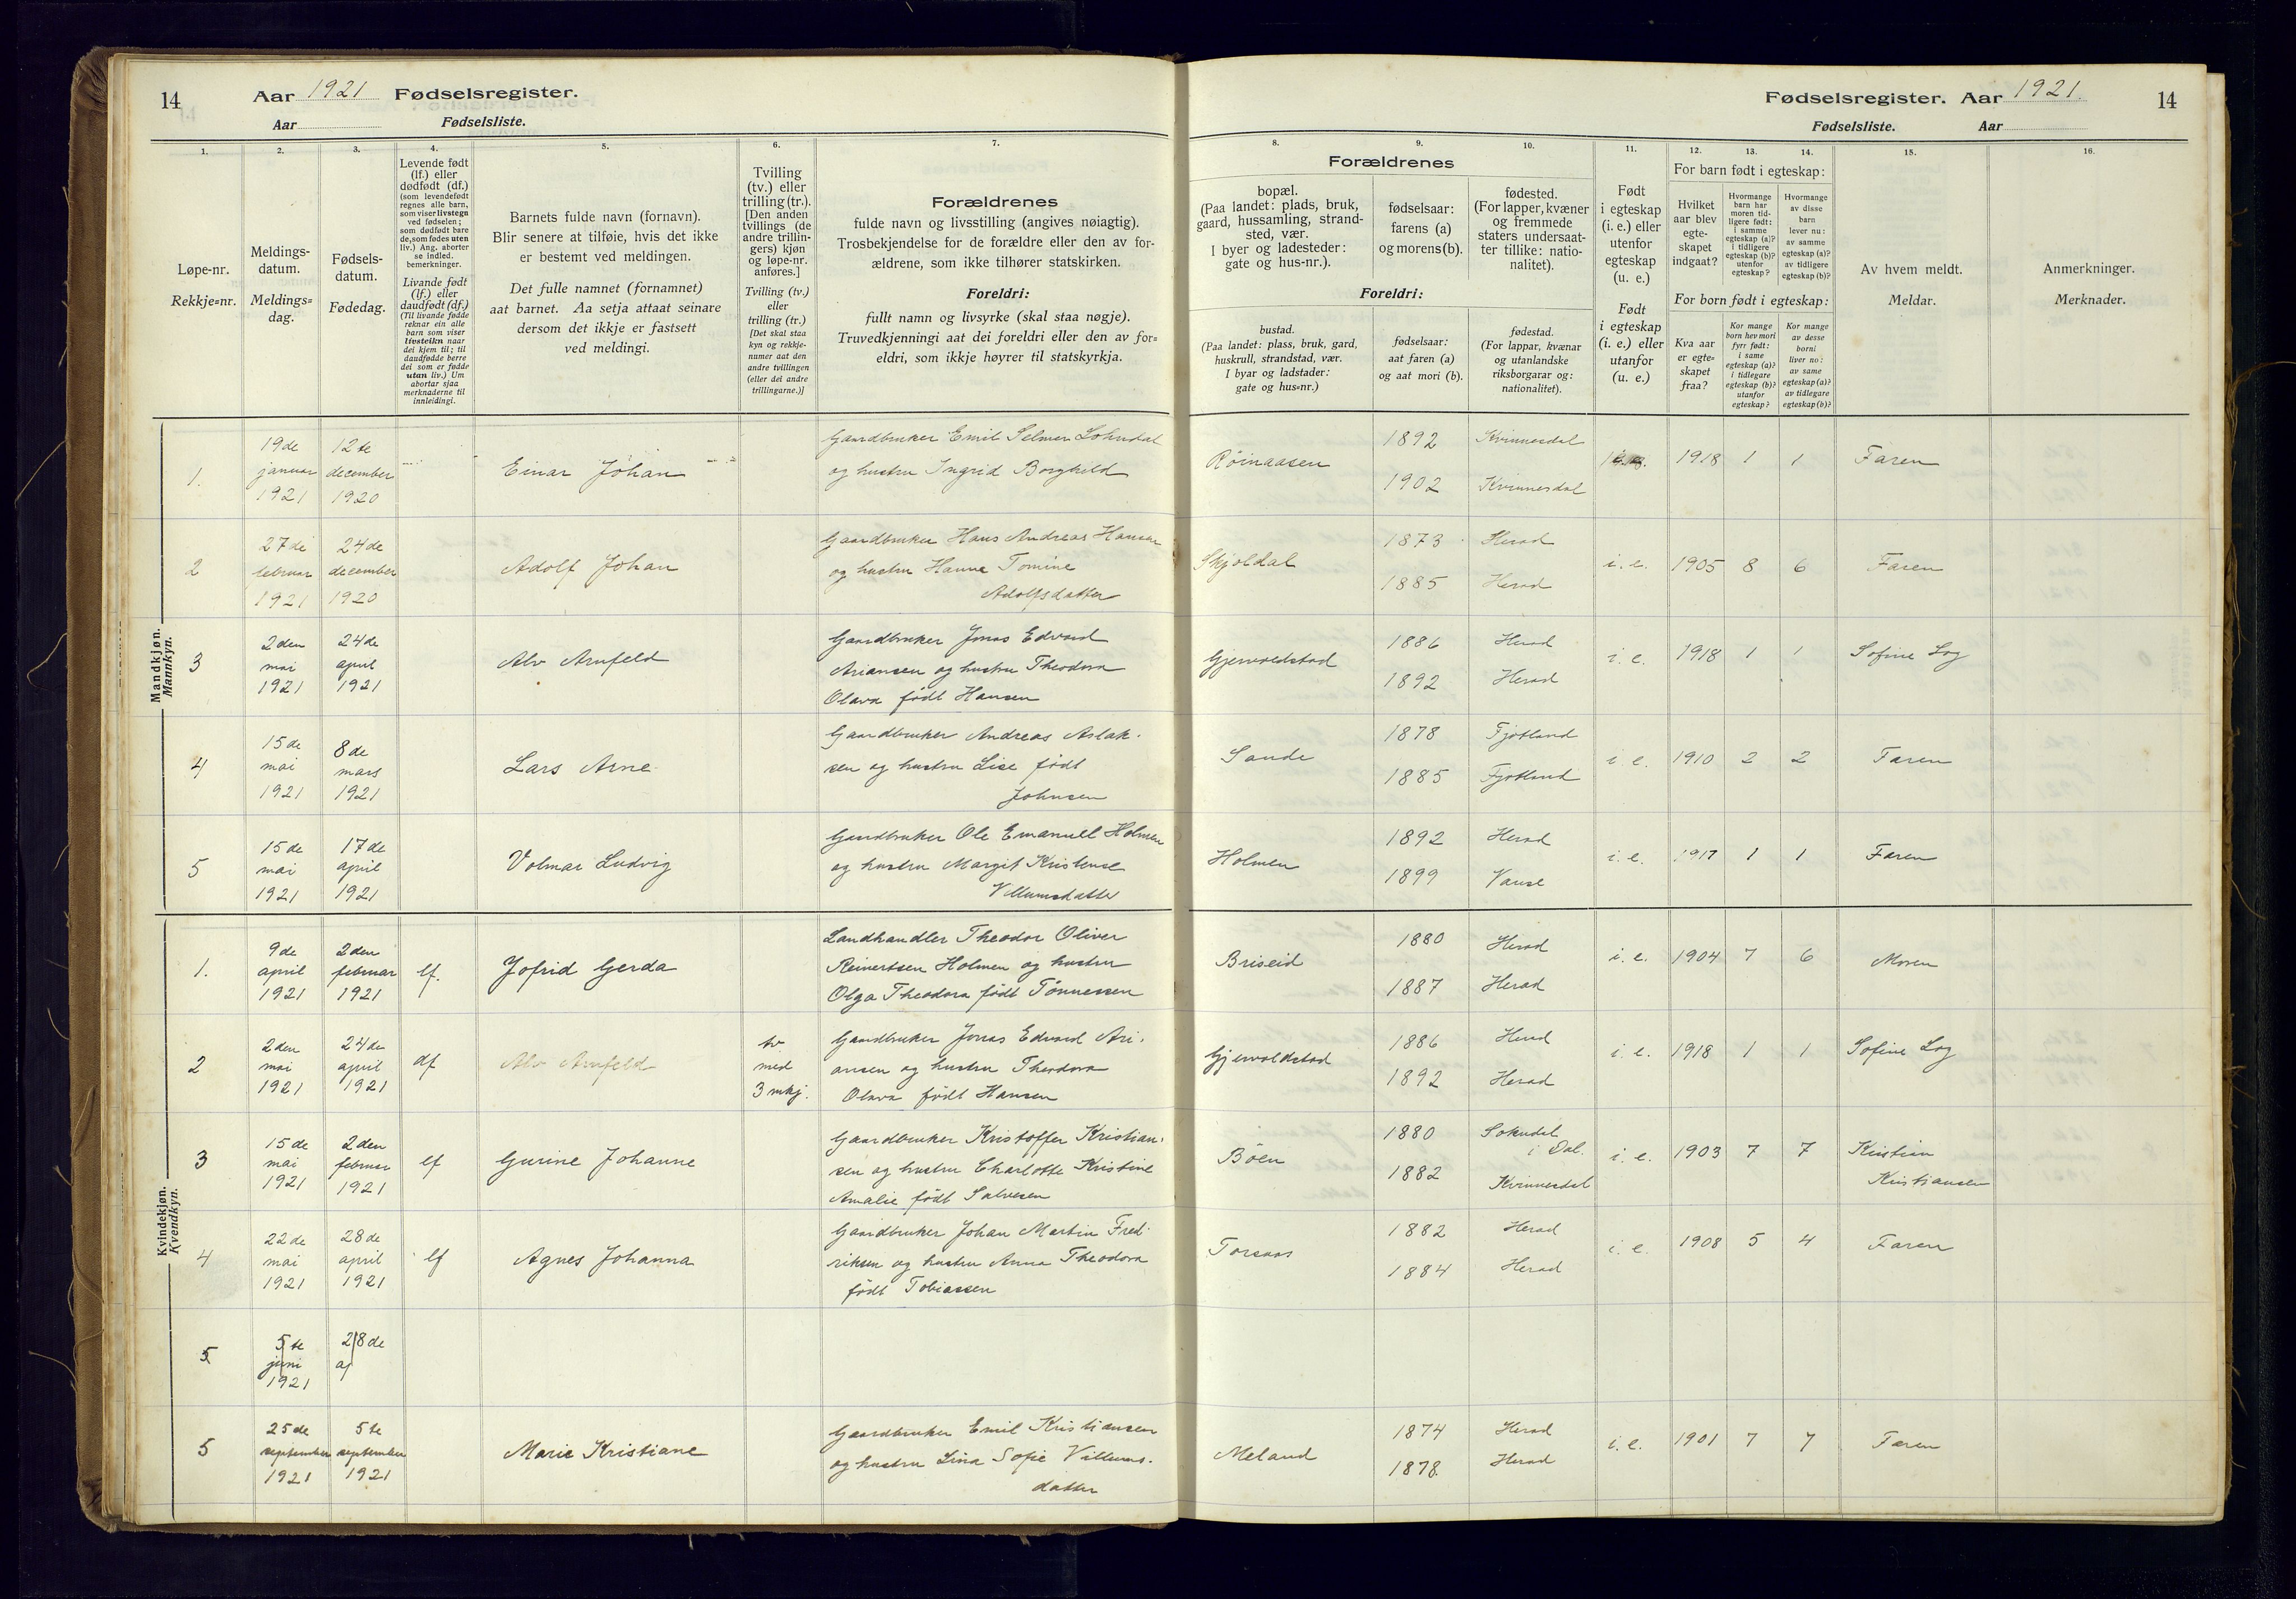 14
Aar 1921 Fødselsregister.
Aar Fødselsliste.
1.
Løpe-nr.
Rekkje=nr.
2.
Meldings-
datum.
Meldings=
dag.
3.
Fødsels-
datum.
Fødedag.
4.
Levende født
(lf.) eller
dødfødt (df.)
(som levendefødt
regnes alle barn,
som viser livstegn
ved fødselen;
som dødfødt bare
de, som fødes uten
liv.) Ang. aborter
se indled.
bemerkninger.
Livande født
(lf.) eller
daudfødt (df.)
(Til livande fødde
reknar ein alle
barn som viser
livsteikn naar
dei kjem til; til
daudfødde berre
dei som er fødde
utan liv.) Um
abortar sjaa
merknaderne til
innleidingi.
5.
Barnets fulde navn (fornavn).
Blir senere at tilføie, hvis det ikke
er bestemt ved meldingen.
Det fulle namnet (fornamnet)
aat barnet. Aa setja attaat seinare
dersom det ikkje er fastsett
ved meldingi.
6.
Tvilling
(tv.) eller
trilling (tr.).
[Den anden
tvillings (de
andre trillin-
gers) kjøn
og løpe-nr.
anføres.]
Tvilling (tv.)
eller
trilling (tr.)
[Det skal staa
kyn og rekkje-
numer aat den
andre tvillingen
(eller dei andre
trillingarne.)]
7.
Forældrenes
fulde navn og livsstilling (angives nøiagtig).
Trosbekjendelse for de forældre eller den av for-
ældrene, som ikke tilhører statskirken.
Foreldri:
fullt namn og livsyrke (skal staa nøgje).
Truvedkjenningi aat dei foreldri eller den av for=
eldri, som ikkje høyrer til statskyrkja.
Fødselsregister. Aar 1921. 14
Fødselsliste. Aar
8. 9. 10.
Forældrenes
bopæl.
(Paa landet: plads, bruk,
gaard, hussamling, strand-
sted, vær.
I byer og ladesteder:
gate og hus-nr.).
fødselsaar:
farens (a)
og morens (b).
fødested.
(For lapper, kvæner
og fremmede
staters undersaat-
ter tillike: natio-
nalitet).
Foreldri:
bustad.
(Paa landet: plass, bruk, gard,
huskrull, strandstad, vær.
I byar og ladstader:
gate og hus=nr.)
fødselsaar:
aat faren (a)
og aat mori (b).
fødestad.
(For lappar, kvænar
og utanlandske
riksborgarar og:
nationalitet).
11.
Født
i egteskap
(i. e.) eller
utenfor
egteskap
(u. e.)
Født
i egteskap
(i. e.) eller
utanfor
(u. e.)
12. 13. 14.
For barn født i egteskap:
Hvilket
aar blev
egte-
skapet
indgaat?
Hvormange
barn har
moren tid-
ligere født:
i samme
egteskap (a)?
i tidligere
egteskap (b)?
utenfor
egteskap?
Hvormange
av disse
barn
lever nu:
av samme
egteskap (a)?
av tidligere
egteskap (b)?
For born født i egteskap:
Kva aar
er egte-
skapet
fraa?
Kor mange
born hev mori
fyrr født:
i same
egteskap (a)?
i tidlegare
egteskap (b)?
utanfor
egteskap?
Kor mange
av desse
borni
liver no:
av same
egteskap (a)?
av tidlegare
egteskap (b)?
15.
Av hvem meldt.
Meldar.
16.
Anmerkninger.
Merknader.
Mandkjøn.
Mannkyn.
1.
19de
januar
1921
12te
december
1920
Einar Johan
Gaardbruker Emil Selmer Lohndal
og hustru Ingrid Borghild
Röinaasen
1892
1902
Kvinnesdal
Kvinnesdal
1918 1 1 Faren
2
27de
februar
1921
24de
december
1920
Adolf Johan
Gaardbruker Hans Andreas Hansen
og hustru Hanna Tomine
Adolfsdatter
Skjoldal
1873
1885
Herad
Herad
i. e. 1905 8 6 Faren
3
2den
mai
1921
24de
april
1921
Alv Arnfeld
Gaardbruker Jonas Edvard
Ariansen og hustru Theodora
Olava født Hansen
Gjervoldstad
1886
1892
Herad
Herad
i. e. 1918 1 1 Sofine Log
4
15de
mai
1921
8de
mars
1921
Lars Arne
Gaardbruker Andreas Aslak-
sen og hustru Lise født
Johnsen
Sande
1878
1885
Fjotland
Fjotland
i. e. 1910 2 2 Faren
5
15de
mai
1921
17de
april
1921
Volmar Ludvig
Gaardbruker Ole Emanuel Holmen
og hustru Margit Kristense
Villumsdatter
Holmen
1892
1899
Herad
Vanse
i. e. 1917 1 1 Faren
Kvindekjøn.
Kvendkyn.
1.
9de
april
1921
2den
februar
1921
lf.
Jofrid Gerda
Landhandler Theodor Oliver
Reinertsen Holmen og hustru
Olga Theodora født Tönnessen
Briseid
1880
1887
Herad
Herad
i. e. 1904 7 6 Moren
2
2den
mai
1921
24de
april
1921
df
Alv Arnfeld
tv
med
3 mkj.
Gaardbruker Jonas Edvard Ari-
ansen og hustru Theodora
Olava født Hansen
Gjervoldstad
1886
1892
Herad
Herad
i. e. 1918 1 1 Sofine Log
3
15de
mai
1921
2den
februar
1921
lf
Gurine Johanne
Gaardbruker Kristoffer Kristian-
sen og hustru Charlotte Kristine
Amalie født Salvesen
Böen
1880
1882
Sokndal
i Dal.
Kvinnesdal
i. e. 1903 7 7 Kristian
Kristiansen
4
22de
mai
1921
28de
april
1921
lf
Agnes Johanna
Gaardbruker Johan Martin Fred-
riksen og hustru Anna Theodora
født Tobiassen
Torsaas
1882
1884
Herad
Herad
i. e. 1908 5 4 Faren
5
5te
juni
1921
28de
ap
5
25de
september
1921
5te
september
1921
Marie Kristiane
Gaardbruker Emil Kristiansen
og hustru Lina Sofie Villums-
datter
Meland
1874
1878.
Herad
Herad
i. e. 1901 7 7 Faren